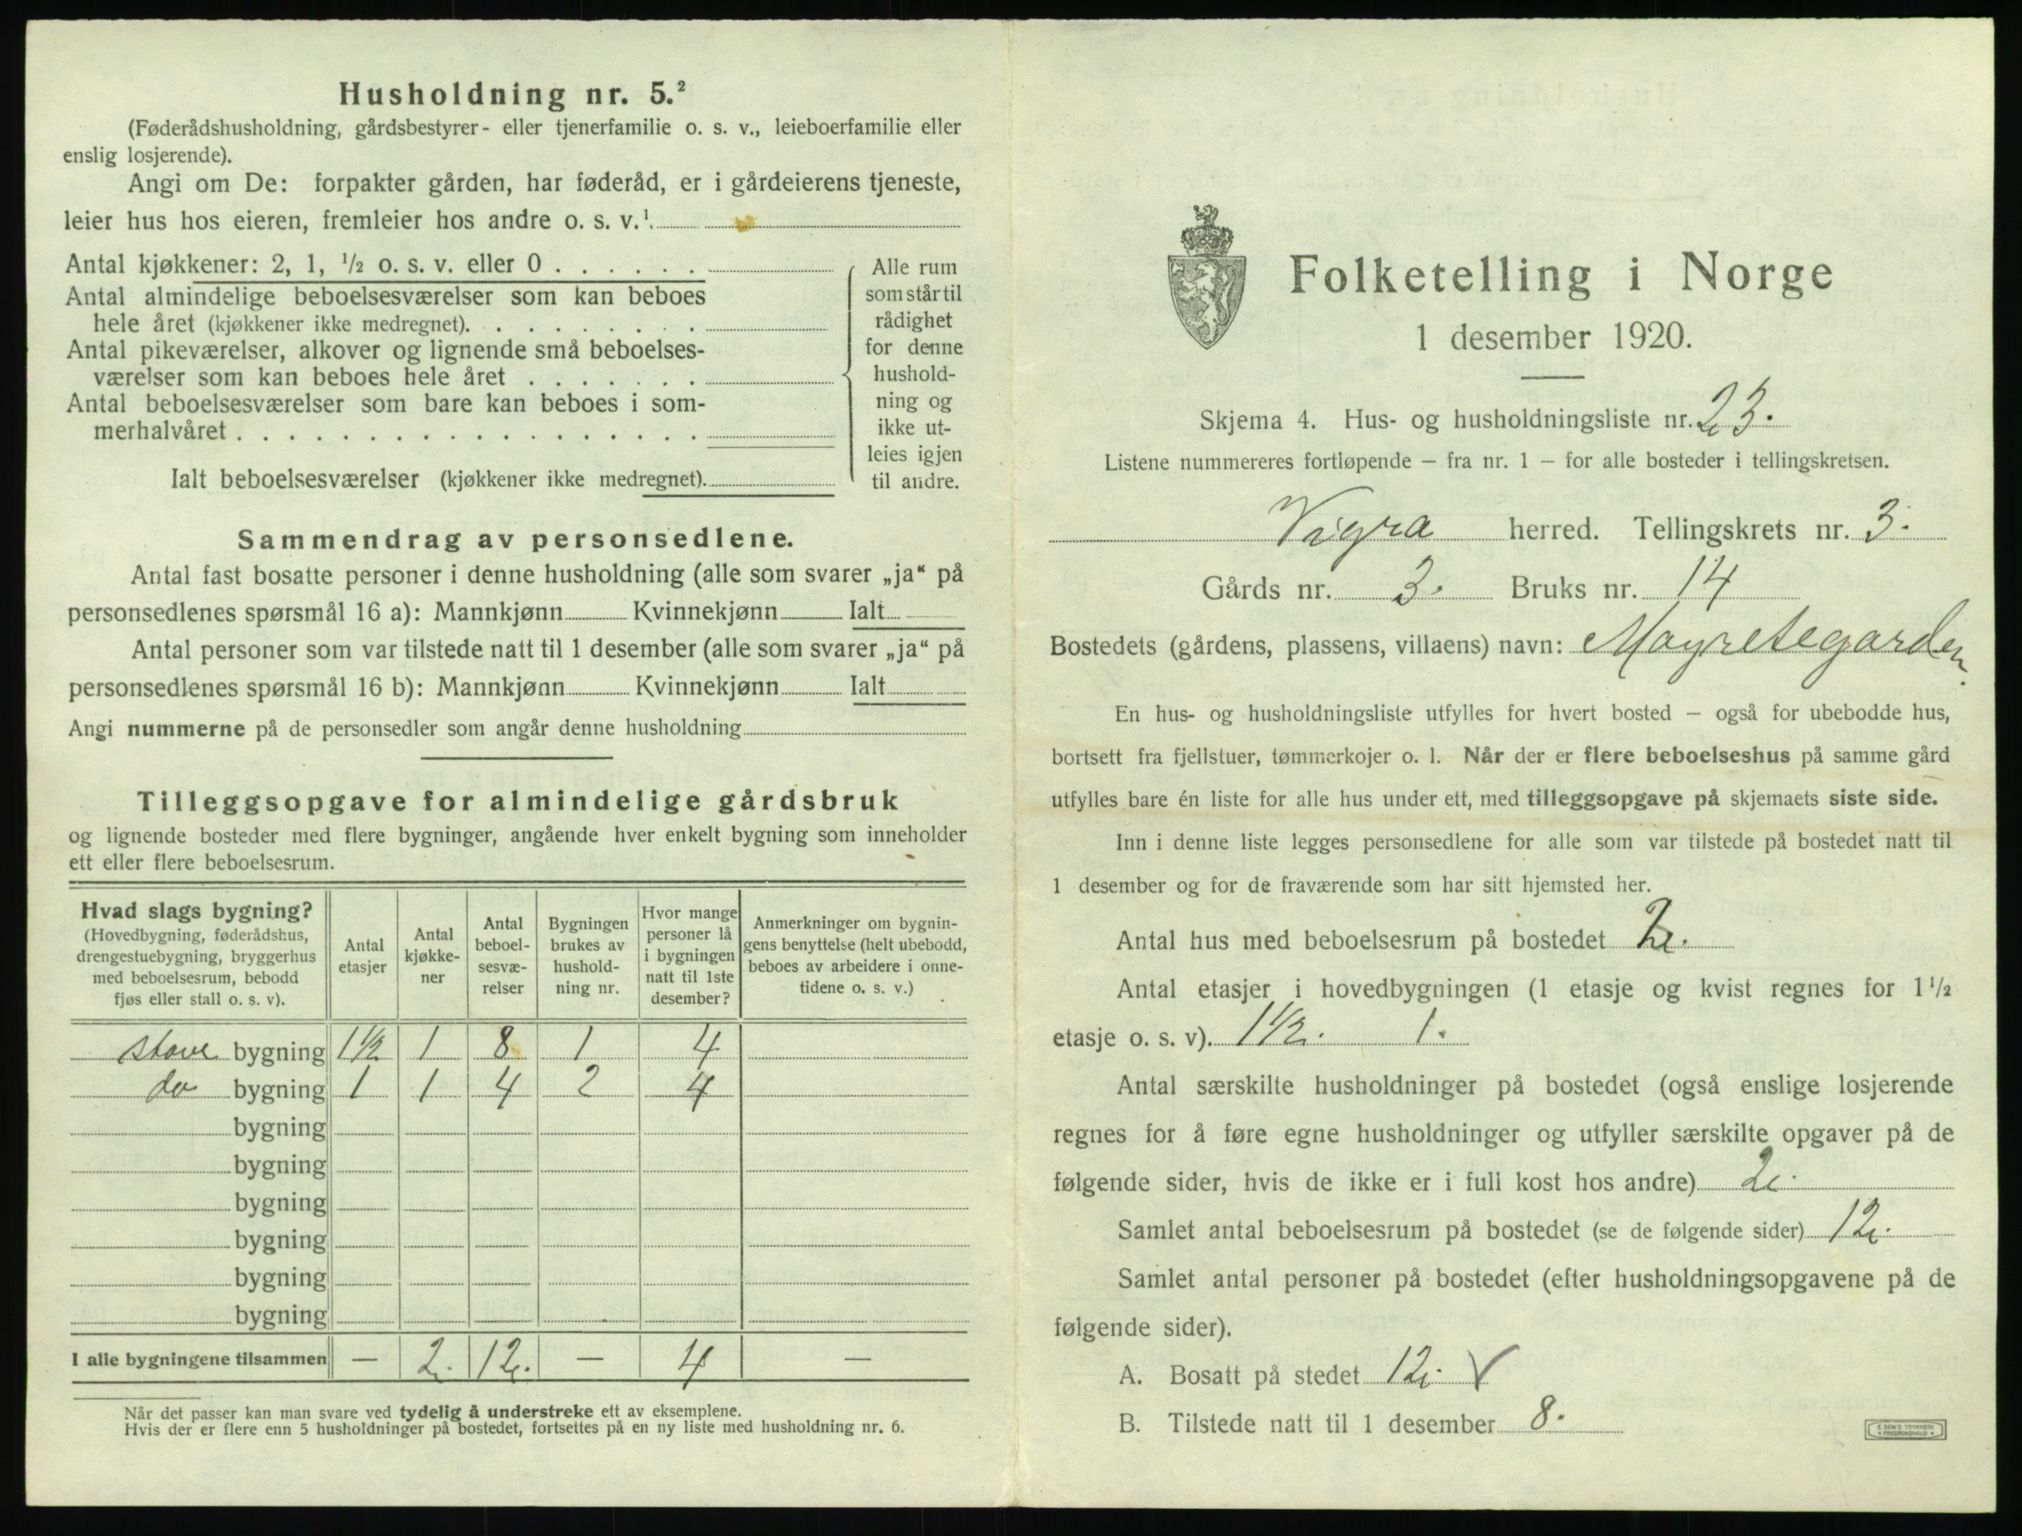 Husholdning nr. 5.²
(Føderådshusholdning, gårdsbestyrer- eller tjenerfamilie o. s. v., leieboerfamilie eller
enslig losjerende).
Angi om De: forpakter gården, har føderåd, er i gårdeierens tjeneste,
leier hus hos eieren, fremleier hos andre o. s. v.¹
Antal kjøkkener: 2, 1, ½ o. s. v. eller 0 . . . . . .
Antal almindelige beboelsesværelser som kan beboes
hele året (kjøkkener ikke medregnet). . . . . . . . .
Antal pikeværelser, alkover og lignende små beboelses-
værelser som kan beboes hele året . . . . . . .
Antal beboelsesværelser som bare kan beboes i som-
merhalvåret . . . . . . . . . . . . . . . . .
Ialt beboelsesværelser (kjøkkener ikke medregnet).
Alle rum
som står til
rådighet
for denne
hushold-
ning og
ikke ut-
leies igjen
til andre.
Sammendrag av personsedlene.
Antal fast bosatte personer i denne husholdning (alle som svarer „ja“ på
personsedlenes spørsmål 16 a): Mannkjønn Kvinnekjønn Ialt
Antal personer som var tilstede natt til 1 desember (alle som svarer „ja“ på
personsedlenes spørsmål 16 b): Mannkjønn Kvinnekjønn Ialt
Angi nummerne på de personsedler som angår denne husholdning
Tilleggsopgave for almindelige gårdsbruk
og lignende bosteder med flere bygninger, angående hver enkelt bygning som inneholder
ett eller flere beboelsesrum.
Hvad slags bygning?
(Hovedbygning, føderådshus,
drengestuebygning, bryggerhus
med beboelsesrum, bebodd
fjøs eller stall o. s. v).
Antal
etasjer
Antal
kjøkke-
ner
Antal
beboel-
sesvæ-
relser
Bygningen
brukes av
hushold-
ning nr.
Hvor mange
personer lå
i bygningen
natt til 1ste
desember?
Anmerkninger om bygnin-
gens benyttelse (helt ubebodd,
beboes av arbeidere i onne-
tidene o. s. v.)
stove bygning 1½ 1 8 1 4
do bygning 1 1 4 2 4
bygning
bygning
bygning
bygning
bygning
bygning
I alle bygningene tilsammen — 2. 12. — 4 —
Når det passer kan man svare ved tydelig å understreke ett av eksemplene.
Hvis der er flere enn 5 husholdninger på bostedet, fortsettes på en ny liste med husholdning nr. 6.
Folketelling i Norge
1 desember 1920.
Skjema 4. Hus- og husholdningsliste nr. 23.
Listene nummereres fortløpende – fra nr. 1 – for alle bosteder i tellingskretsen.
Vigra herred. Tellingskrets nr. 3.
Gårds nr. 3. Bruks nr. 14
Bostedets (gårdens, plassens, villaens) navn: Mayretegarden.
En hus- og husholdningsliste utfylles for hvert bosted – også for ubebodde hus,
bortsett fra fjellstuer, tømmerkojer o. l. Når der er flere beboelseshus på samme gård
utfylles bare én liste for alle hus under ett, med tilleggsopgave på skjemaets siste side.
Inn i denne liste legges personsedlene for alle som var tilstede på bostedet natt til
1 desember og for de fraværende som har sitt hjemsted her.
Antal hus med beboelsesrum på bostedet 2.
Antal etasjer i hovedbygningen (1 etasje og kvist regnes for 1½
etasje o. s. v). 1½. 1.
Antal særskilte husholdninger på bostedet (også enslige losjerende
regnes for å føre egne husholdninger og utfyller særskilte opgaver på de
følgende sider, hvis de ikke er i full kost hos andre) 2.
Samlet antal beboelsesrum på bostedet (se de følgende sider) 12.
Samlet antal personer på bostedet (efter husholdningsopgavene på de
følgende sider).
A. Bosatt på stedet 12. √
B. Tilstede natt til 1 desember 8.